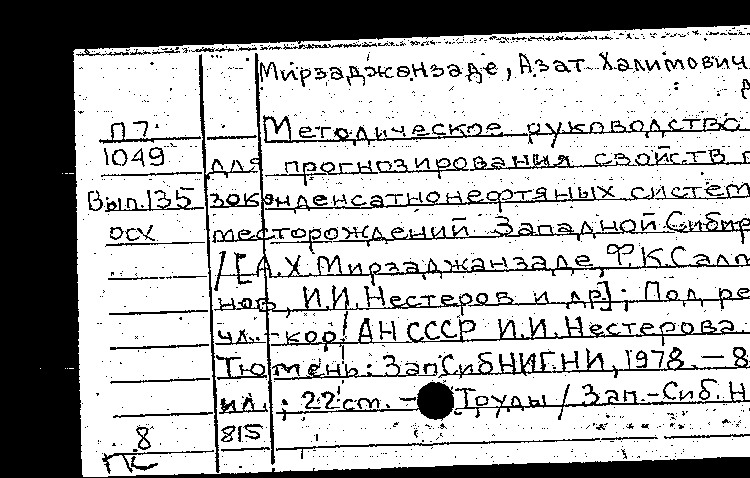 Мирзаджанзаде, Азат Халимович
П7 Методическое руководство
1049 для прогнозирования свойств г
Вып.135 зоконденсатнонефтяных систем
осх месторождений Западной Сибир
/[А.Х.Мирзаджанзаде, Ф.К.Салм
нов, И.И.Нестеров и др]; Под ре
чл.-кор. АН СССР И.И.Нестерова.
Тюмень: ЗапСибНИГНИ, 1978. – 8
ил.; 22 ст. – Труды / Зап.-Сиб. Н
8 815
ПС